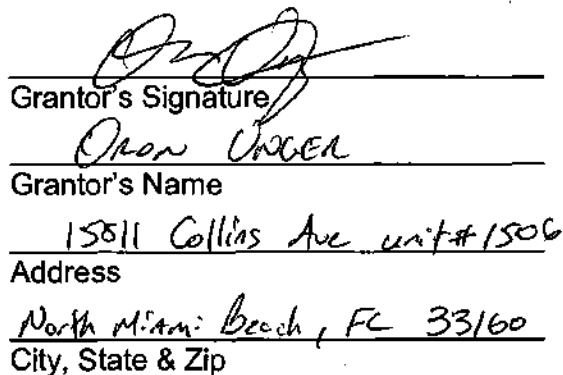 Grantor's Signature
Oron Unger
Grantor's Name
15811 Collins Ave unit # 1506
Address
North Miami Beach, FL 33160
City, State & Zip